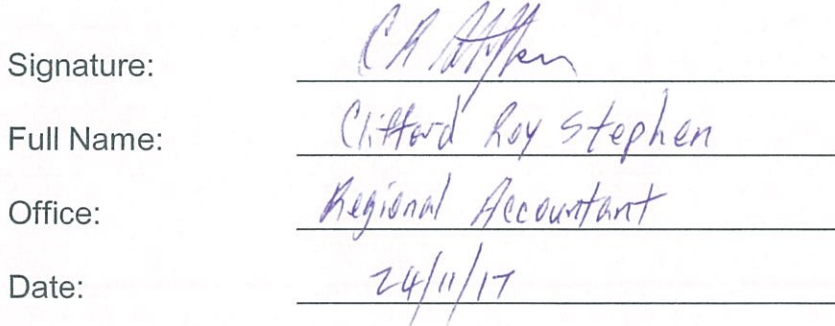 Signature: CR Stephen
Full Name: Clifford Roy Stephen
Office: Regional Accountant
Date: 24/11/17